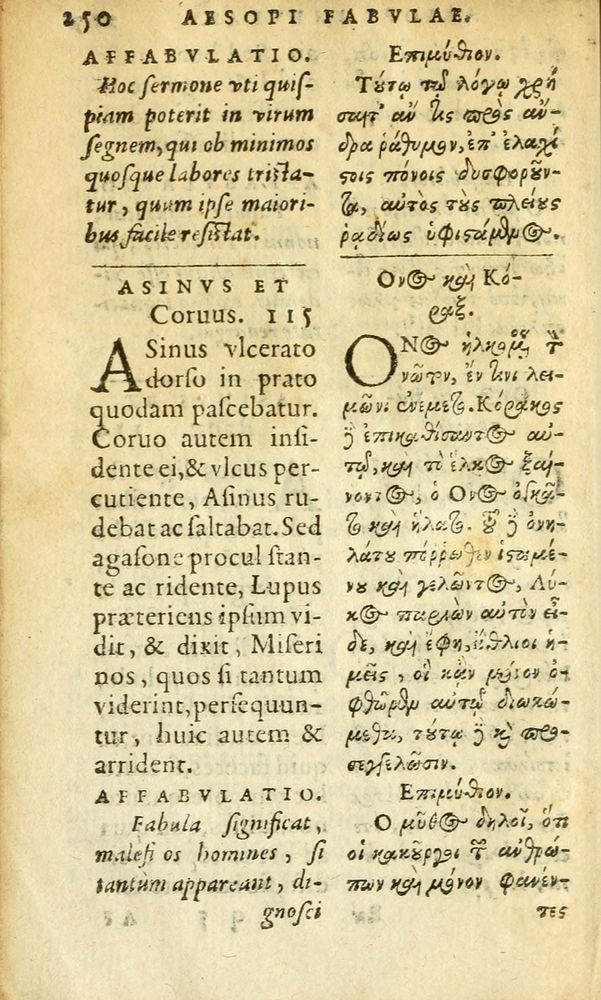 250 AESOPI FABVLAE.
AFFABVLATIO.
Hoc sermone vti quis-
piam poterit in virum
segnem, qui ob minimos
quosque labores trista-
tur, quum ipse maiori-
bus facile resistat.
ASINVS ET
Coruus. 115
ASinus vlcerato
dorso in prato
quodam pascebatur.
Coruo autem insi-
dente ei, & vlcus per-
cutiente, Asinus ru-
debat ac saltabat. Sed
agasone procul stan-
te ac ridente, Lupus
præteriens ipsum vi-
dit, & dixit, Miseri
nos, quos si tantum
viderint, persequun-
tur, huic autem &
arrident.
AFFABVLATIO.
Fabula significat,
malefi os homines, si
tantùm appareant, di-
gnosci
Επιμύθιον.
Τούτῳ τῷ λόγῳ χρή
σαιτ' αν τις προς αν-
δρα ράθυμον, επ' ελαχί
στοις πόνοις δυσφοροῦν-
τα, αυτος τους πλείους
ραδίως υφιστάμενος.
Ονος και Κό-
ραξ.
ΟΝος ηλκωμένος τον
νῶτον, έν τινι λει-
μῶνι ενέμετο. Κόρακος
δε επικαθίσαντος αυ-
τῷ, και το έλκος ξαί-
νοντος, ο Ονος ογκᾶ-
το και ήλατο. τοῦ δε ονη-
λάτου πόρρωθεν ισταμέ-
νου και γελῶντος, Λύ-
κος παριων αυτον εἶ-
δε, και έφη, άθλιοι η-
μεῖς, οι καν μόνον ο-
φθῶμεν αυτῷ διωκό-
μεθα, τούτῳ δε και προσ-
γελῶσιν.
Επιμύθιον.
Ο μῦθος δηλοῖ, ότι
οι κακοῦργοι τῶν ανθρώ-
πων και μόνον φανέν-
τες